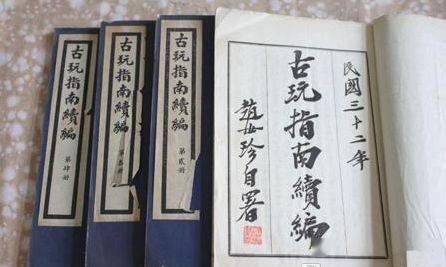 古玩指南續編
第肆册
古玩指南續編
古玩指南續編
第貳册
民國三十二年
古玩指南續編
趙汝珍自署